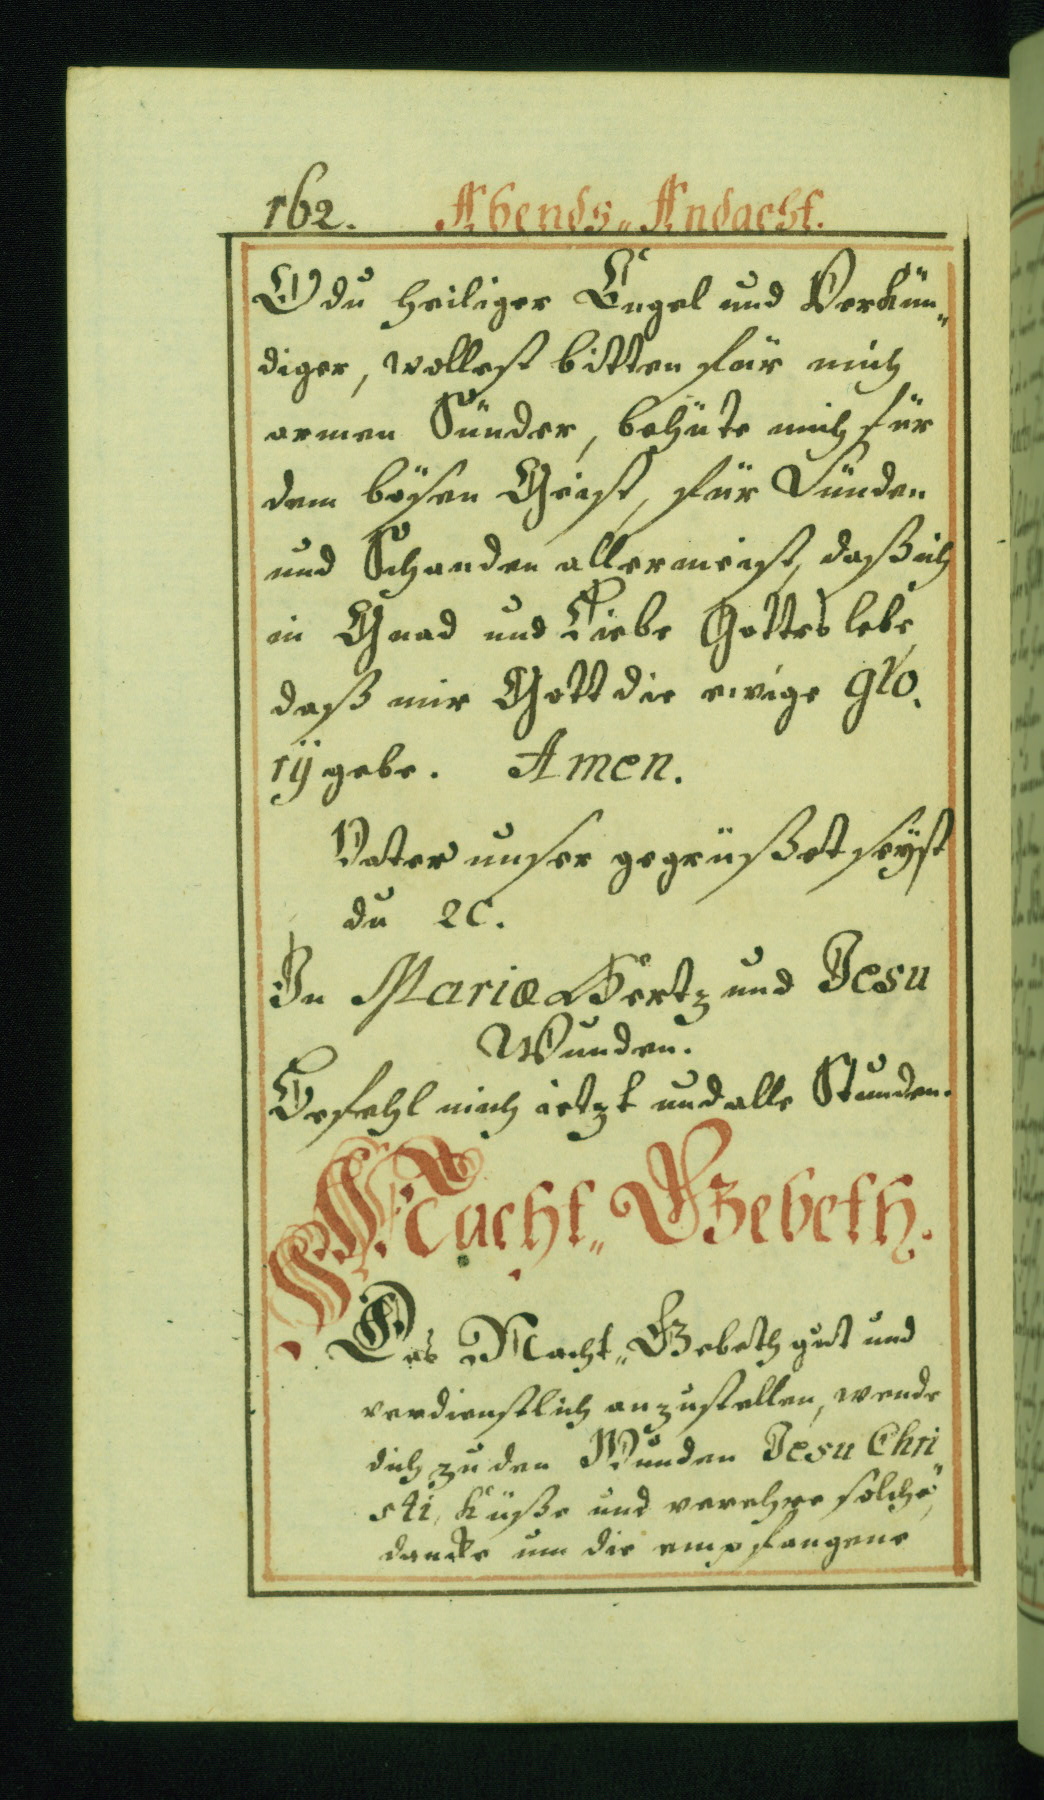 162. Abends„Andacht.
O du heiliger Engel und Verkün„
diger, wollest bitten für mich
armen Sünder, behüte mich für
dem bösen Geist, für Sünden
und Schanden allermeist, daß ich
in Gnad und Liebe Gottes lebe
daß mir Gott die ewige glo,
rÿ gebe. Amen.
Vater unser gegrüßet seÿst
du ꝛc.
In Mariæ Hertz und Jesu
Wunden.
Befehl mich ietzt und alle Stunden.
Nacht„Gebeth.
Das Nacht„Gebeth gut und
verdienstlich anzustellen, wende
dich zu den Wunden Jesu Chri„
sti, Küße und verehre solche,
dancke um die empfangene